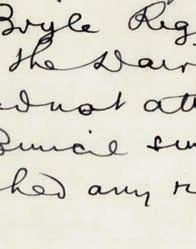 Boyle Rig
the Dair
ed not att
Council sw
hed any r